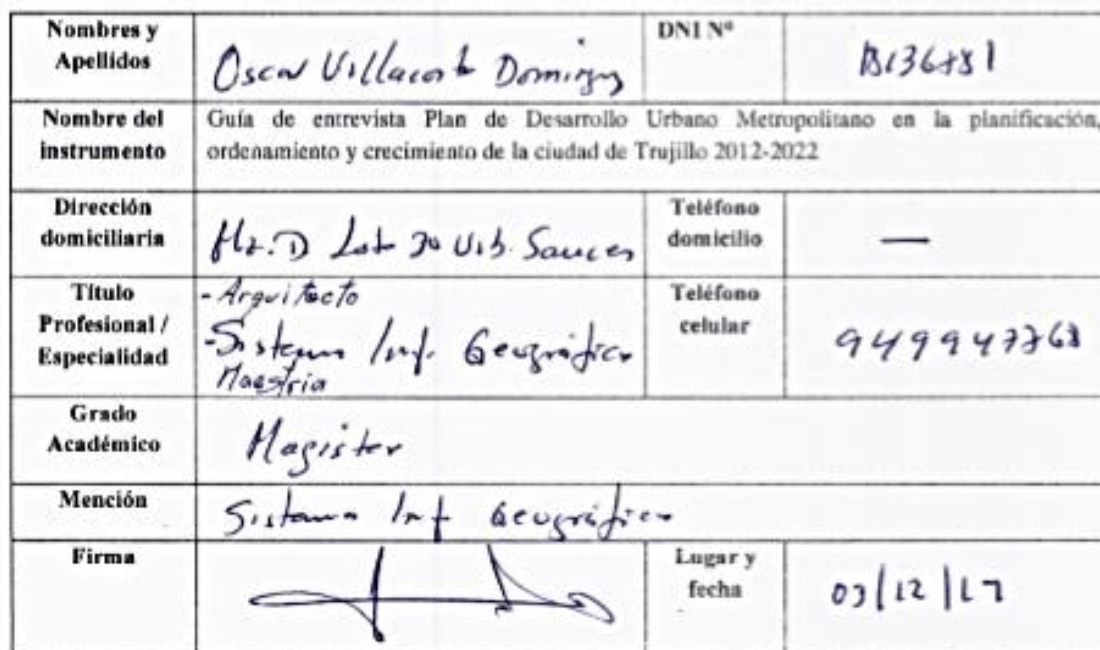 Nombres y Apellidos
Oscar Villacorta Domingz
DNI Nº
Nombre del instrumento
Guía de entrevista Plan de Desarrollo Urbano Metropolitano en la planificación,
ordenamiento y crecimiento de la ciudad de Trujillo 2012-2022
Dirección domiciliaria
Mz. D Lot 30 Urb. Sauces
Teléfono domicilio
—
Título Profesional / Especialidad
- Arquitecto
- Sistema Inf. Geográfica
Maestria
Teléfono celular
949947768
Grado Académico
Magister
Mención
Sistema Inf Geográfica
Firma
Lugar y fecha
03/12/17